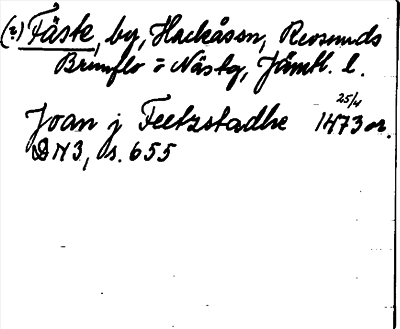 (?) Fäste, by, Hackåssn, Revsunds
Brunflo o Näsby, Jämtl. l.
25/4
Joan j Feetzstadhe 1473 or.
DN3, s. 655